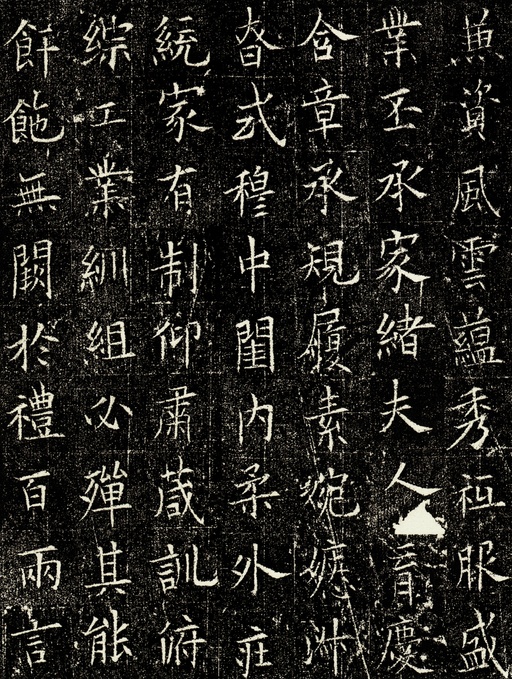 兼資風雲蘊秀祗服盛
業丕承家緒夫人育慶
含章承規履素婉嫕淑
昚式穆中閨内柔外庄
統家有制仰肅蕆訓俯
綜工業紃組必殫其能
餅無闕於禮百兩言